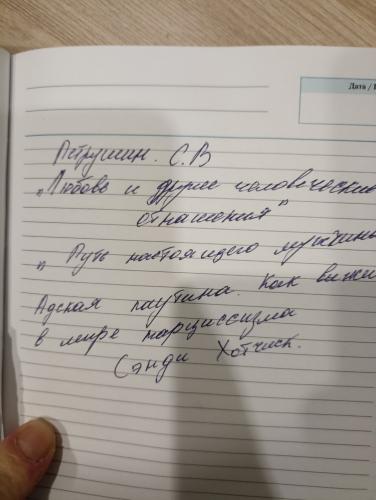 Дата /
Петрушин. С.В
„Любовь и другие человеческие
отношения"
„Путь настоящего мужчины
Адская паутина. Как выжи
в мире нарциссизма
Сэнди Хотчкис.